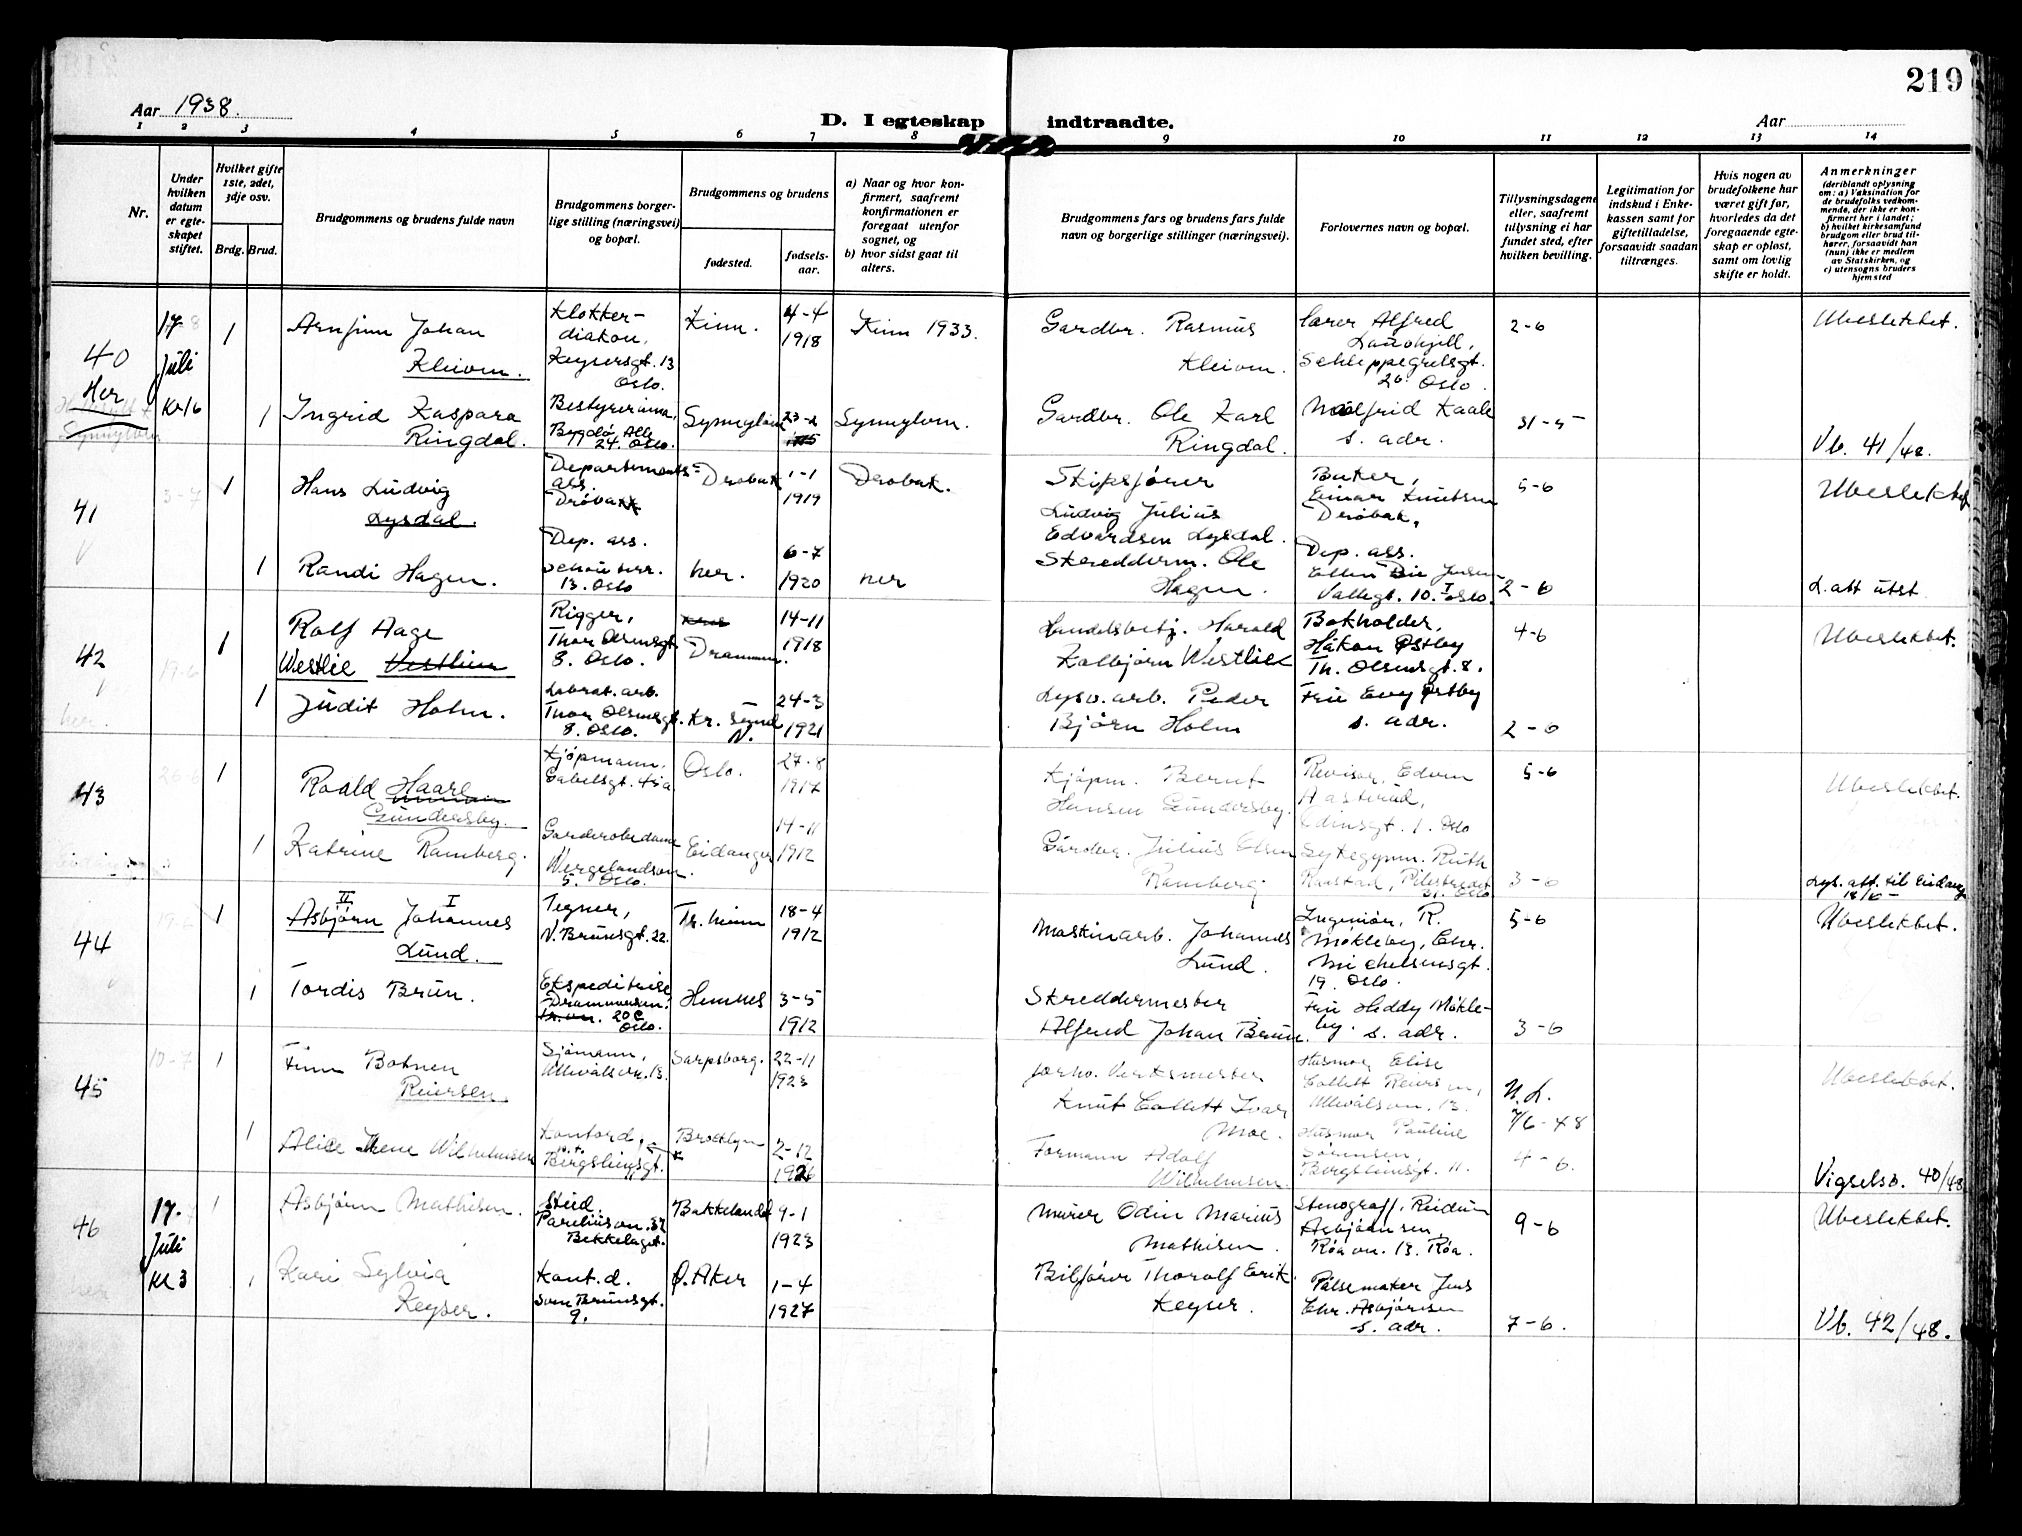 219
Aar 1938.
D. I egteskap indtraadte.
Aar
1 2 3 4 5 6 7 8 9 10 11 12 13 14
Nr.
Under hvilken datum er egteskapet stiftet.
Hvilket gifte 1ste, 2det, 3dje osv.
Brdg. Brud.
Brudgommens og brudens fulde navn
Brudgommens borgerlige stilling (næringsvei) og bopæl.
Brudgommens og brudens
fødested.
fødselsaar.
a) Naar og hvor konfirmert, saafremt konfirmationen er foregaat utenfor sognet, og
b) hvor sidst gaat til alters.
Brudgommens fars og brudens fars fulde navn og borgerlige stillinger (næringsvei).
Forlovernes navn og bopæl.
Tillysningsdagene eller, saafremt tillysning ei har fundet sted, efter hvilken bevilling.
Legitimation for indskud i Enkekassen samt for giftetilladelse, forsaavidt saadan tiltrænges.
Hvis nogen av brudefolkene har været gift før, hvorledes da det foregaaende egteskap er opløst, samt om lovlig skifte er holdt.
Anmerkninger
(deriblandt oplysning om: a) Vaksination for de brudefolks vedkommende, der ikke er konfirmert her i landet; b) hvilket kirkesamfund brudgom eller brud tilhører, forsaavidt han (hun) ikke er medlem av Statskirken, og c) utensogns bruders hjemsted
40 Her
17- Juli Kl 16
1 Arnfinn Johan Kleiven.
Klokker-diakon, Keysersgt. 13 Oslo.
Kinn. 4-4 1918 Kinn 1933.
Gardbr. Rasmus Kleiven.
Lærer Alfred Schleppegrelsgt. 26 Oslo.
2-6
Ubeslektet.
1 Ingrid Kaspara Ringdal.
Bestyrerinne, Bygdø Alle 24. Oslo.
Synnylven 23-2
Synnylven.
Gardbr. Ole Karl Ringdal.
Kaale s. adr.
31-5
Vb. 41/48.
41
3-7
1 Hans Ludvig Lysdal.
Departements-ass. Drøbak
Drøbak 1-1 1919 Drøbak.
Skipsfører Ludvig Julius Edvardsen Lysdal.
Einar Knutsen Drøbak.
5-6
Ubeslektet
1 Randi Hagen.
Dep. ass. 13. Oslo
her. 6-7 1920 her
Skredderm. Ole Hagen.
Dep. ass. Ellen Jensen Vallegt. 10. I Oslo.
2-6
L. att utst.
42
her.
19-6
1 Rolf Aage Westlie Vestlien
Rigger, Thor Olsensgt. 8. Oslo.
Drammen. 14-11 1918
Handelsbetj. Harald Kolbjørn Westlie
Bokholder, Håkon Østby Th. Olsensgt. 8.
4-6
Ubeslektet.
1 Judit Holm.
Labrat. arb. Thor Olsensgt. 8. Oslo.
Kr. Sund N. 24-3 1921
Lysv. arb. Peder Bjørn Holm
Fru Evy Østby s. adr.
2-6
43
26-6
1 Roald Haare Gundersby.
Kjøpmann, Gabelsgt. 45a
Oslo. 27-8 1917
Kjøpm. Bernt Hansen Gundersby.
Revisor, Edvin Aasterud, Odinsgt. 1. Oslo
5-6
Ubeslektet.
1 Katrine Ramberg.
Garderobedame Wergelandsvn. 5. Oslo.
Eidanger 14-11 1912
Gårdbr. Julius Olsen Ramberg
Sykegymn. Ruth Raastad, Pilestredet 31. Oslo
3-6
Lys. att. til Eidanger 18/6
44
19-6
1 II I Asbjørn Johannes Lund.
Tegner, N. Brunsgt. 22.
Tr. heim 18-4 1912
Maskinarb. Johannes Lund.
Ingeniør, R. Møkleby, Chr. Michelsensgt. 19. Oslo.
5-6
Ubeslektet.
1 Tordis Brun.
Ekspeditrise Drammensvn. 20C Oslo.
Hemnes 3-5 1912
Skreddermester Alfred Johan Brun.
Fru Heddy Møkleby. s. adr.
3-6
45
10-7
1 Finn Botnen Reiersen.
Sjømann, Ullevålsvn. 13.
Sarpsborg. 22-11 1923
Verksmester Knut Collett Ivar Moe.
Husmor Elise Collett Reiersen, Ullevålsvn. 13.
N. L. 7/6-48
Ubeslektet.
1 Alice Irene Wilhelmsen
Kontord., Bergsliensgt. 11
Brooklyn 2-12 1926
Formann Adolf Wilhelmsen.
Husmor Pauline Sørensen, Bergsliensgt. 11.
4-6.
Vigselsb. 40/48
46
17- Juli Kl 3
1 Asbjørn Mathisen.
Stud. Pareliusvn. 37 Bekkelaget.
Bekkelaget 9-1 1923
Murer Odin Marius Mathisen.
Stenograf, Reidun Asbjørnsen, Røa vn. 13. Røa.
9-6
Ubeslektet.
1 Kari Sylvia Keyser.
Kont.d. Sven Brunsgt. 9.
Ø. Aker 1-4 1927
Bilfører Thoralf Erik Keyser.
Pølsemaker Jens Chr. Asbjørnsen s. adr.
7-6.
Vb. 42/48.